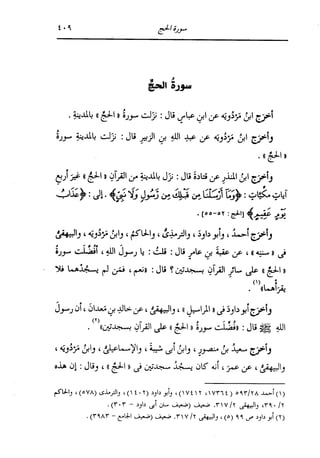 سورة الحج ٤٠٩
سورةُ الحجِّ
أخرَج ابنُ مَرْدُويَه عن ابنِ عباسٍ قال : نزَلت سورةُ « الحجِّ » بالمدينةِ .
وأخرَج ابنُ مَرْدُويَه عن عبدِ اللهِ بنِ الزبيرِ قال : نزَلت بالمدينةِ سورةُ
« الحجِّ » .
وأخرَج ابنُ المنذرِ عن قتادةَ قال : نزَل بالمدينةِ من القرآنِ « الحجُّ » غيرَ أربعِ
آياتٍ مكيَّاتٍ : ﴿وَمَآ أَرْسَلْنَا مِن قَبْلِكَ مِن رَّسُولٍ وَلَا نَبِيٍّ﴾ . إلى : ﴿عَذَابُ
يَوْمٍ عَقِيمٍ﴾ [الحج : ٥٢-٥٥] .
وأخرَج أحمدُ ، وأبو داودَ ، والترمذيُّ ، والحاكمُ ، وابنُ مَرْدُويَه ، والبيهقيُّ
في « سننِه » ، عن عقبةَ بنِ عامرٍ قال : قلتُ : يا رسولَ اللهِ ، أفُضِّلت سورةُ
« الحجِّ » على سائرِ القرآنِ بسجدتين ؟ قال : « نعم ، فمن لم يسجُدْهما فلا
يقرأْهما »(١) .
وأخرَج أبو داودَ في « المراسيلِ » ، والبيهقيُّ ، عن خالدِ بنِ مَعدانَ ، أن رسولَ
اللهِ ﷺ قال : « فُضِّلت سورةُ « الحجِّ » على القرآنِ بسجدتين »(٢) .
وأخرَج سعيدُ بنُ منصورٍ ، وابنُ أبي شيبةَ ، والإسماعيليُّ ، وابنُ مَرْدُويَه ،
والبيهقيُّ ، عن عمرَ ، أنه كان يسجُدُ سجدتين في « الحجِّ » ، وقال : إن هذه
(١) أحمد ٥٩٣/٢٨ (١٧٣٦٤ ، ١٧٤١٢) ، وأبو داود (١٤٠٢) ، والترمذي (٥٧٨) ، والحاكم
٣٩٠/٢ ، والبيهقي ٣١٧/٢ . ضعيف (ضعيف سنن أبي داود - ٣٠٣) .
(٢) أبو داود ص ٩٩ (٥) ، والبيهقي ٣١٧/٢ . ضعيف (ضعيف الجامع - ٣٩٨٣) .